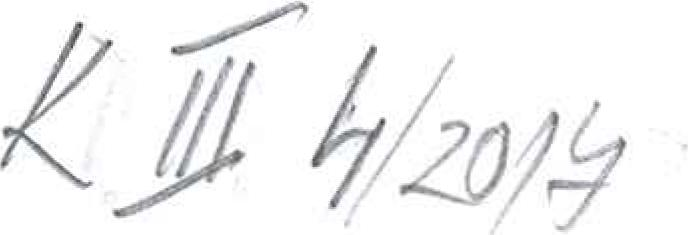 K III 4/2017